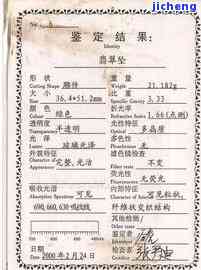 jicheng
鉴定结果:
Identity
翡翠坠
形状 重量
Cutting Shape 雕件 Weight 21.182g
大小 比重
Size 36.4×51.2mm Specific Gravity 3.33
颜色 折光率
Colour 绿色 Refractive 1.66(点测)
透明度 光性特征
Transparency 半透明 Optical 多晶质
光泽 多色性
Luster 玻璃光泽 Pleochroism 无
外观特征 滤色镜检查
Character of 完整、光洁 Filter test 不变
Appearance
荧光性
Fluorescence 无荧光
吸收光谱 内部特征
Absorption Spectrum 可见 Character of
纤维状交织结构
其他检测
Other
鉴定者
日期 2000年2月24日